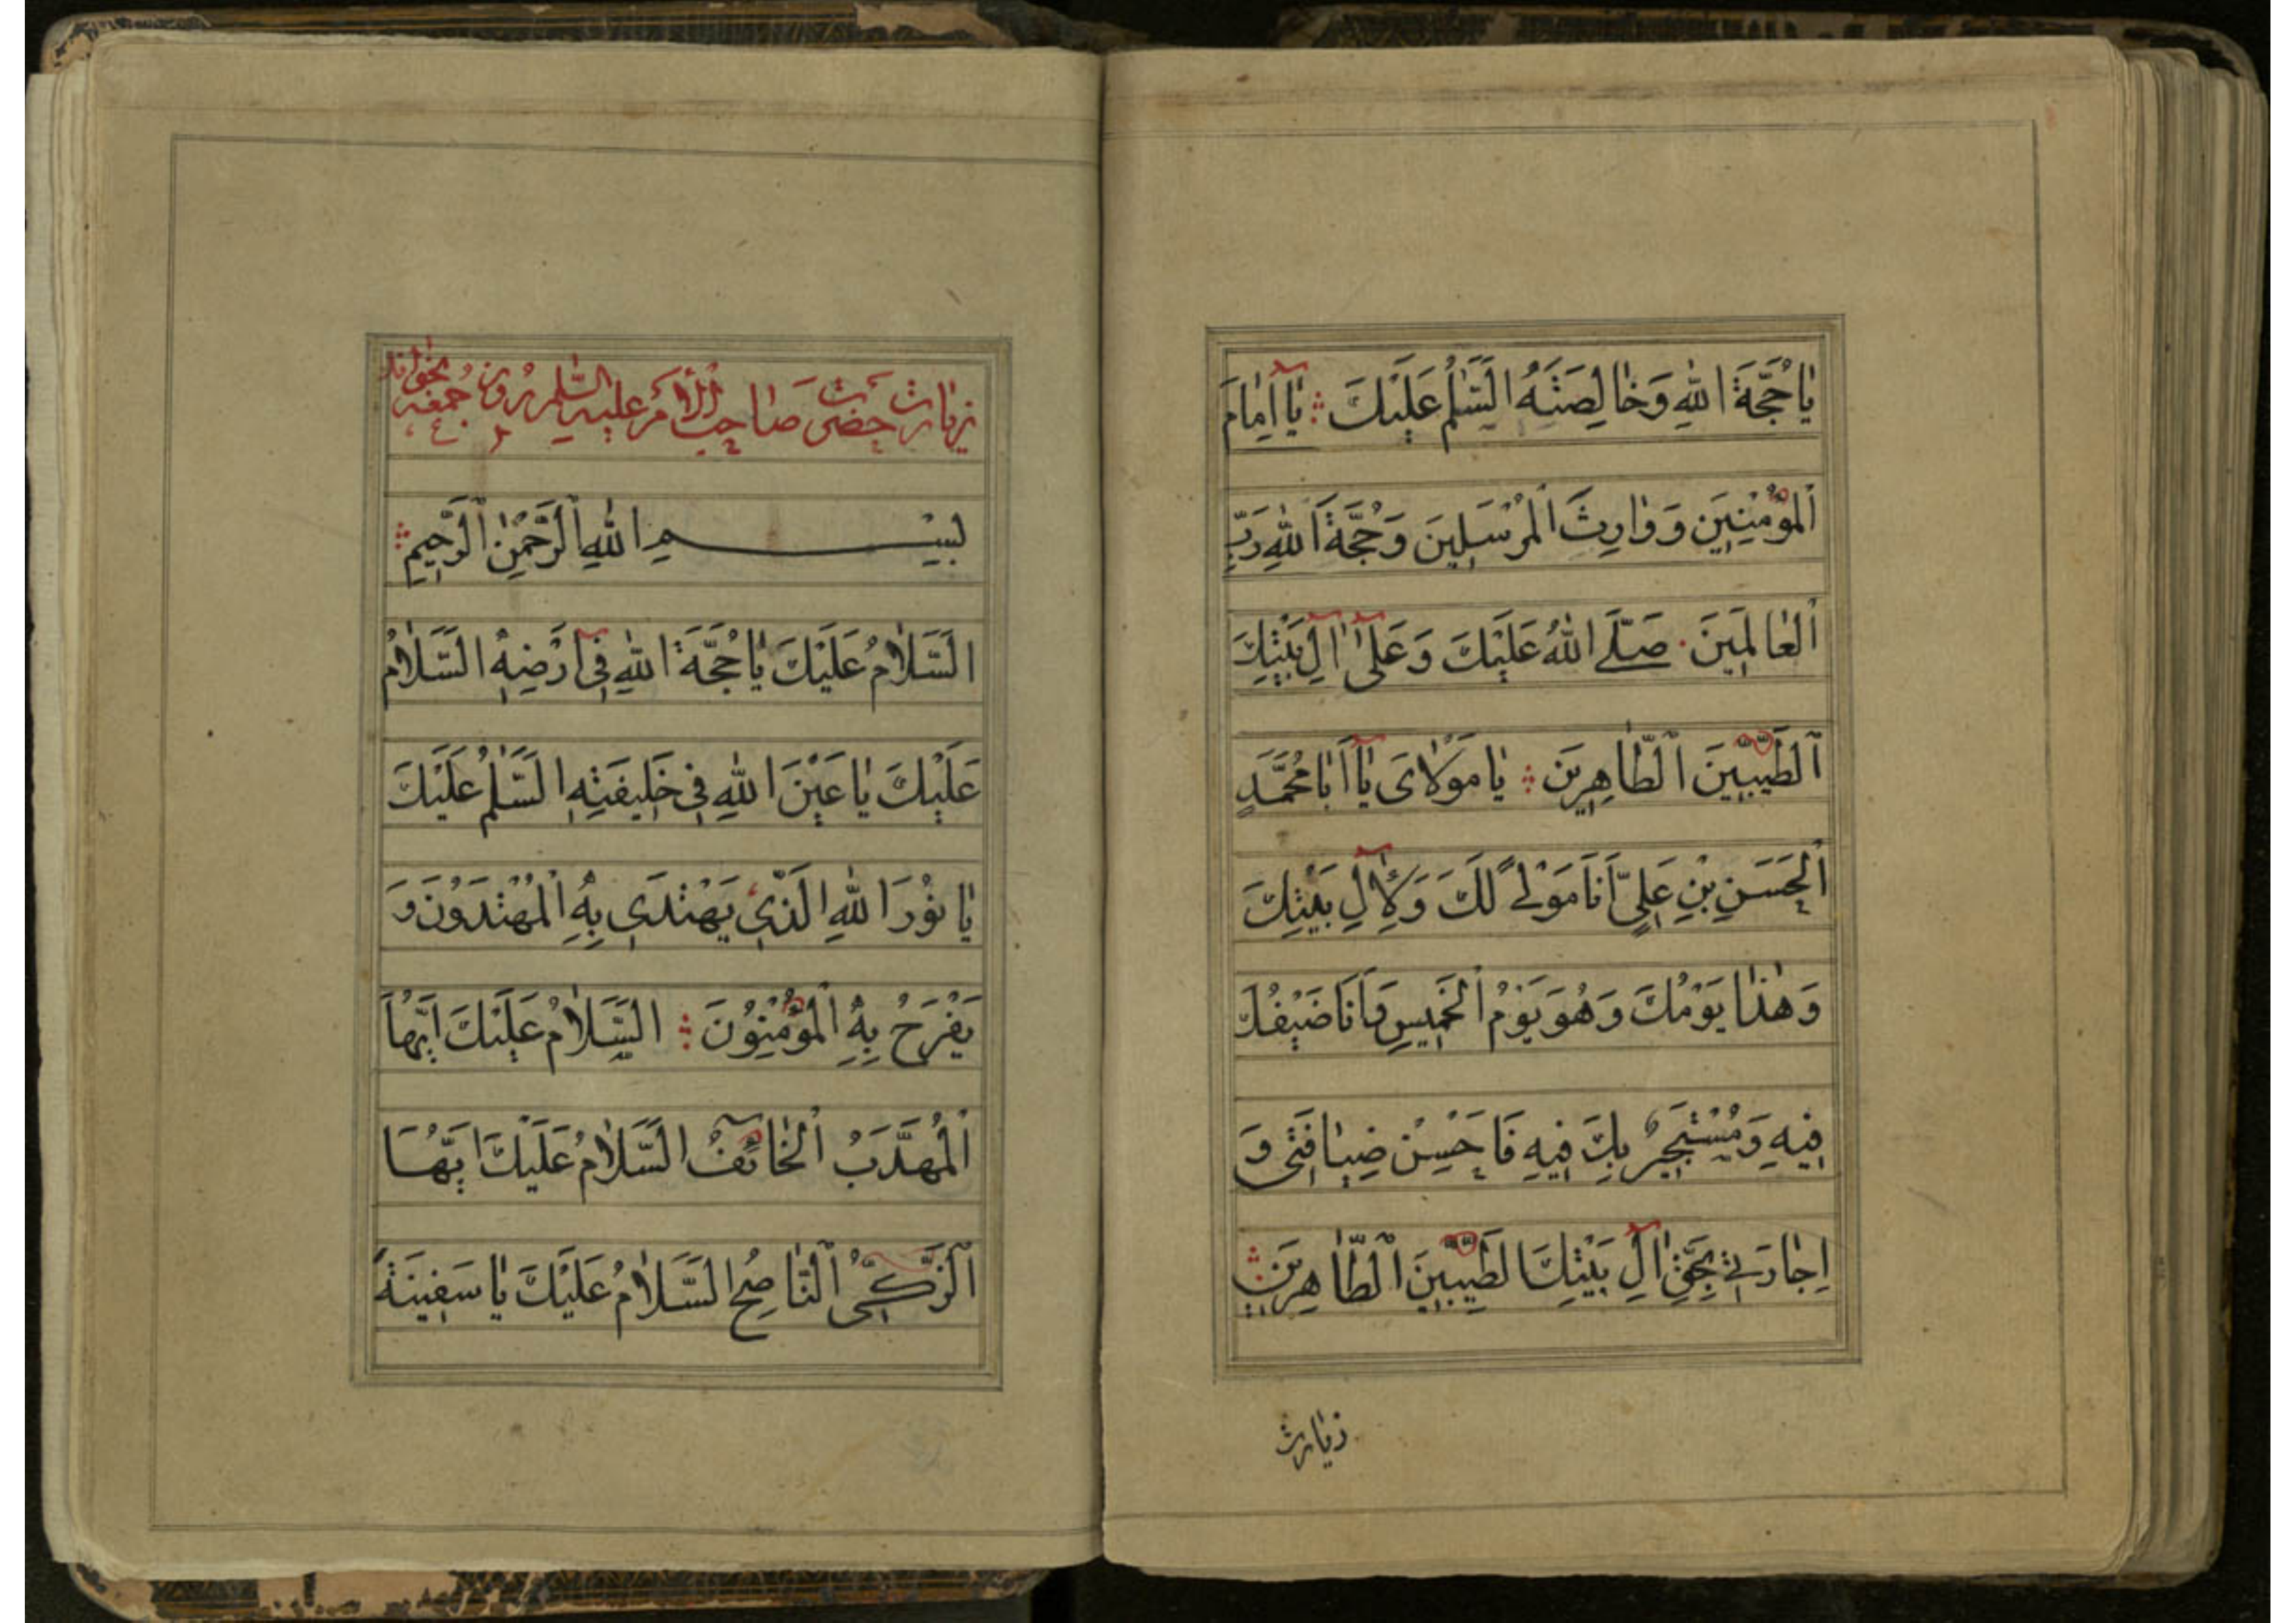 يَا حُجَّةَ اللهِ وَخَالِصَتَهُ السَّلٰمُ عَلَيْكَ يَا اِمَامَ
الْمُؤْمِنِينَ وَ وَارِثَ الْمُرْسَلِينَ وَحُجَّةَ اللهِ رَبِّ
الْعَالَمِينَ صَلَّى اللهُ عَلَيْكَ وَعَلٰى اٰلِ بَيْتِكَ
الطَّيِّبِينَ الطَّاهِرِينَ يَا مَوْلَايَ يَا اَبَا مُحَمَّدٍ
الْحَسَنِ بْنِ عَلِيٍّ اَنَا مَوْلًى لَكَ وَلِاٰلِ بَيْتِكَ
وَهٰذَا يَوْمُكَ وَهُوَ يَوْمُ الْخَمِيسِ وَاَنَا ضَيْفُكَ
فِيهِ وَمُسْتَجِيرٌ بِكَ فِيهِ فَاَحْسِنْ ضِيَافَتِي وَ
اِجَارَتِي بِحَقِّ اٰلِ بَيْتِكَ الطَّيِّبِينَ الطَّاهِرِينَ
زیارت
زیارت حضرت صاحب الامر علیه السلم روز جمعه بخواند
بِسْمِ اللهِ الرَّحْمٰنِ الرَّحِيمِ
السَّلَامُ عَلَيْكَ يَا حُجَّةَ اللهِ فِي اَرْضِهِ السَّلَامُ
عَلَيْكَ يَا عَيْنَ اللهِ فِي خَلِيفَتِهِ السَّلٰمُ عَلَيْكَ
يَا نُورَ اللهِ الَّذِي يَهْتَدِي بِهِ الْمُهْتَدُونَ وَ
يَفْرَحُ بِهِ الْمُؤْمِنُونَ السَّلَامُ عَلَيْكَ اَيُّهَا
الْمُهَذَّبُ الْخَائِفُ السَّلَامُ عَلَيْكَ اَيُّهَا
الزَّكِيُّ النَّاصِحُ السَّلَامُ عَلَيْكَ يَا سَفِينَةَ